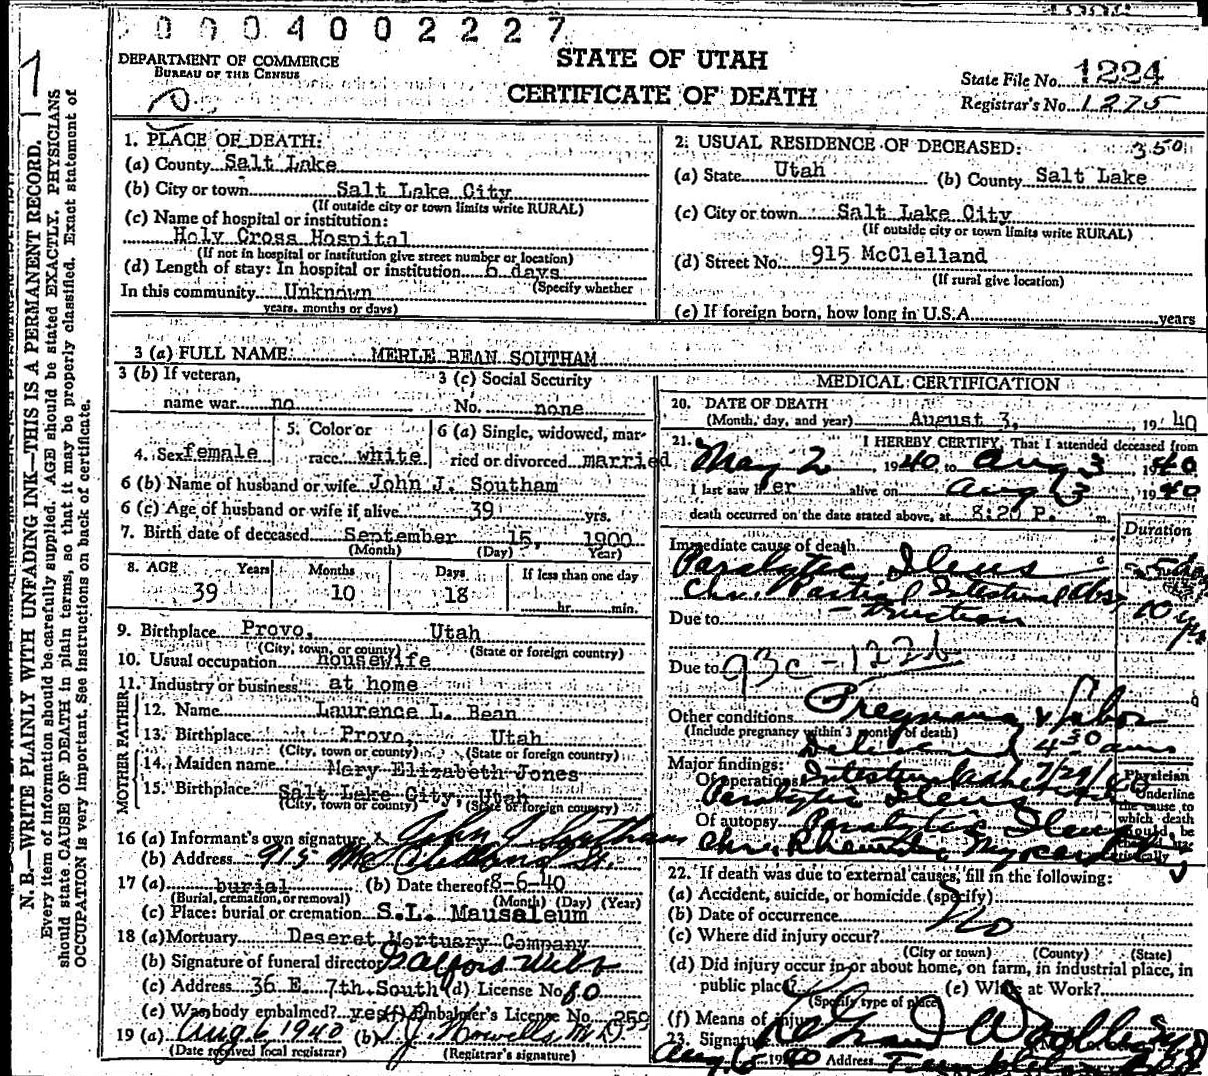 0004002227
DEPARTMENT OF COMMERCE
BUREAU OF THE CENSUS
STATE OF UTAH
CERTIFICATE OF DEATH
State File No. 1224
Registrar's No. 1275
N. B.—WRITE PLAINLY WITH UNFADING INK—THIS IS A PERMANENT RECORD.
Every item of information should be carefully supplied. AGE should be stated EXACTLY. PHYSICIANS
should state CAUSE OF DEATH in plain terms, so that it may be properly classified. Exact statement of
OCCUPATION is very important. See instructions on back of certificate.
1. PLACE OF DEATH:
(a) County Salt Lake
(b) City or town Salt Lake City
(If outside city or town limits write RURAL)
(c) Name of hospital or institution:
Holy Cross Hospital
(If not in hospital or institution give street number or location)
(d) Length of stay: In hospital or institution 6 days
(Specify whether
In this community Unknown
years, months or days)
2. USUAL RESIDENCE OF DECEASED: 350
(a) State Utah (b) County Salt Lake
(c) City or town Salt Lake City
(If outside city or town limits write RURAL)
(d) Street No. 915 McClelland
(If rural give location)
(e) If foreign born, how long in U.S.A. years
3 (a) FULL NAME MERLE BEAN SOUTHAM
3 (b) If veteran, name war no
3 (c) Social Security No. none
4. Sex female
5. Color or race white
6 (a) Single, widowed, married or divorced married
6 (b) Name of husband or wife John J. Southam
6 (c) Age of husband or wife if alive 39 yrs.
7. Birth date of deceased September 15, 1900
(Month) (Day) (Year)
8. AGE Years Months Days If less than one day
39 10 18 hr. min.
9. Birthplace Provo, Utah
(City, town, or county) (State or foreign country)
10. Usual occupation housewife
11. Industry or business at home
FATHER
12. Name Laurence L. Bean
13. Birthplace Provo, Utah
(City, town or county) (State or foreign country)
MOTHER
14. Maiden name Mary Elizabeth Jones
15. Birthplace Salt Lake City, Utah
(City, town or county) (State or foreign country)
16 (a) Informant's own signature x John J Southam
(b) Address 915 McClelland St.
17 (a) burial (b) Date thereof 8-6-40
(Burial, cremation, or removal) (Month) (Day) (Year)
(c) Place: burial or cremation S.L. Mausaleum
18 (a) Mortuary Deseret Mortuary Company
(b) Signature of funeral director
(c) Address 36 E. 7th South (d) License No. 80
(e) Was body embalmed? yes (f) Embalmer's License No. 259
19 (a) Aug 6 1940 (b) T. J. Howells M.D.
(Date received local registrar) (Registrar's signature)
MEDICAL CERTIFICATION
20. DATE OF DEATH
(Month, day, and year) August 3, 1940
21. I HEREBY CERTIFY, That I attended deceased from
May 2, 1940 to Aug 3 1940
I last saw her alive on Aug 3, 1940
death occurred on the date stated above, at 8:20 P. m.
Duration
Immediate cause of death
Paralytic Ileus 5 days
Chr. Partial Intestinal Obs- 10 yrs
Due to -truction
Due to 93c - 122b
Other conditions Pregnancy & labor
(Include pregnancy within 3 months of death)
Delivered 430 am
Major findings:
Of operations 7/29/40
Paralytic Ileus
Of autopsy Paralytic Ileus
Chr. Rheumatic Myocarditis
Physician
Underline
the cause to
which death
should be
charged sta-
tistically
22. If death was due to external causes, fill in the following:
(a) Accident, suicide, or homicide (specify)
(b) Date of occurrence No
(c) Where did injury occur?
(City or town) (County) (State)
(d) Did injury occur in or about home, on farm, in industrial place, in
public place? (e) While at Work?
(Specify type of place)
(f) Means of injury
23. Signature
Aug 6 1940 Address Templeton Bld